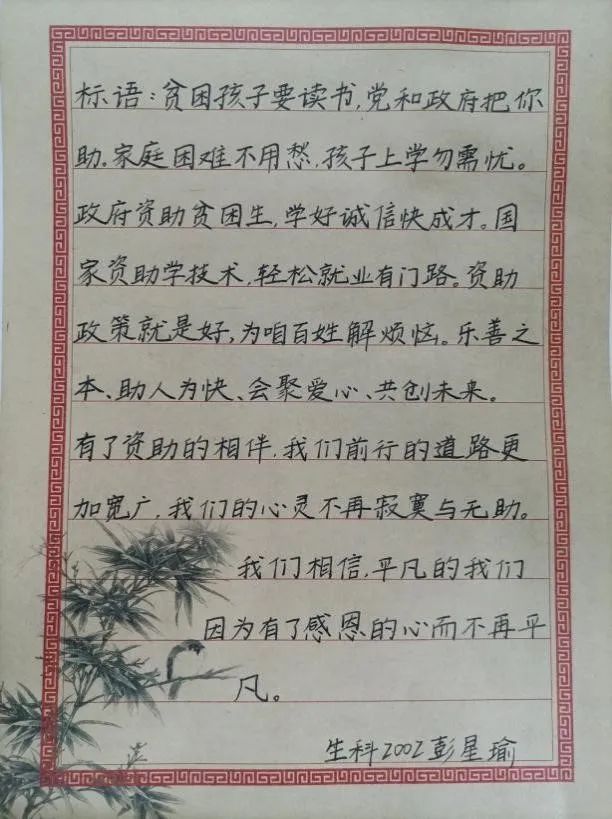 标语：贫困孩子要读书，党和政府把你
助。家庭困难不用愁，孩子上学勿需忧。
政府资助贫困生，学好诚信快成才。国
家资助学技术，轻松就业有门路。资助
政策就是好，为咱百姓解烦恼。乐善之
本、助人为快、会聚爱心、共创未来。
有了资助的相伴，我们前行的道路更
加宽广，我们的心灵不再寂寞与无助。
我们相信，平凡的我们
因为有了感恩的心而不再平
凡。
生科2002彭星瑜